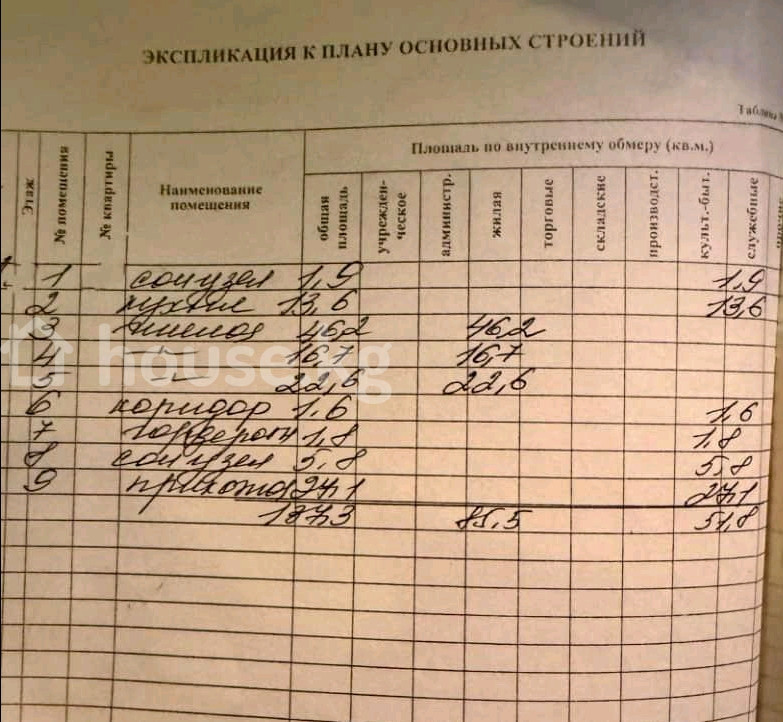 ЭКСПЛИКАЦИЯ К ПЛАНУ ОСНОВНЫХ СТРОЕНИЙ
Таблица
Этаж
№ помещения
№ квартиры
Наименование помещения
Площадь по внутреннему обмеру (кв.м.)
общая площадь
учрежден-ческое
администр.
жилая
торговые
складские
производст.
культ.-быт.
служебные
1 санузел 1,9 1,9
2 кухня 13,6 13,6
3 жилая 46,2 46,2
4 — 16,7 16,7
5 — 22,6 22,6
6 коридор 1,6 1,6
7 гардероб 1,8 1,8
8 санузел 5,8 5,8
9 прихожая 27,1 27,1
137,3 85,5 51,8
house.kg